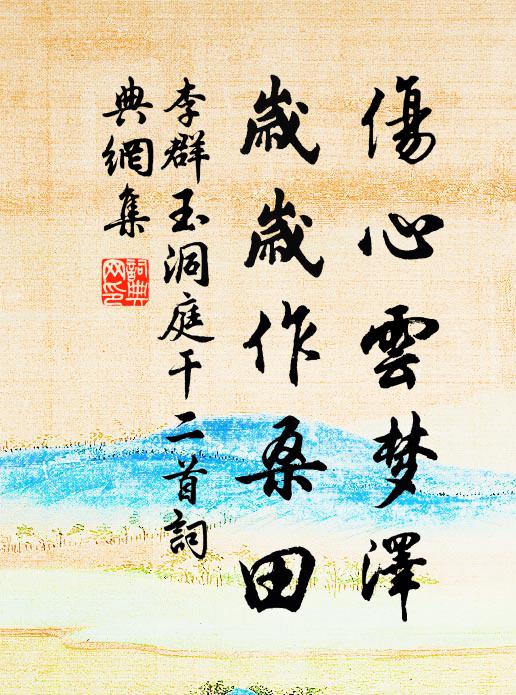 傷心雲梦澤
歲歲作桑田
李群玉洞庭干二首詞
典網集
詞典
网印